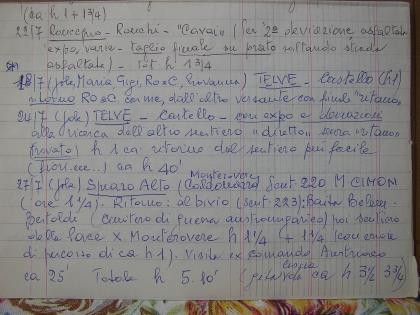 (da h 1 + 1 3/4)
22/7 Roncegno - Ronchi - "Cavai" (per 2ª deviazione asfaltata
expo varie - Taglio finale su prato saltando strada
asfaltata) - Tot. h 1 3/4
(Jole, Maria Gigi, Ro e C, Giovanna) TELVE - Castello (h 1)
ritorno Ro e C. come, dall'altro versante con finale "ritano"
24/7 (Jole) TELVE - Castello - con expo e deviazioni
alla ricerca dell'altro sentiero "diretto" senza "ritano"
trovato) h 1 ca ritorno dal sentiero più facile
(fiori...) ca h 40'
27/7 (Jole) Spiazzo Alto (Caldonazzo) Sent. 220 M CIMON
Monterovere
(ore 1 1/4). Ritorno: al bivio (sent 223): Baita Belem-
Bertoldi (cimitero di guerra austroungarico) poi sentiero
della Pace x Monterovere h 1 1/4 + 1 1/4 (con errore
di percorso di ca h 1). Visita ex comando Austriaco
ca 25' Totale h 5.10' ca h 3 1/2 3 3/4)